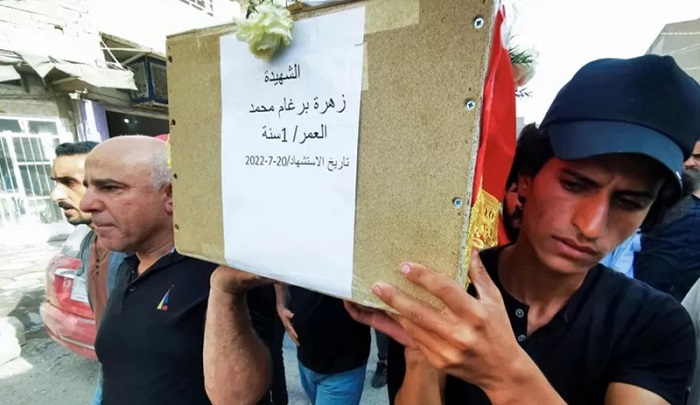 الشهيدة
زهرة برغام محمد
العمر/ 1سنة
تاريخ الاستشهاد/20-7-2022